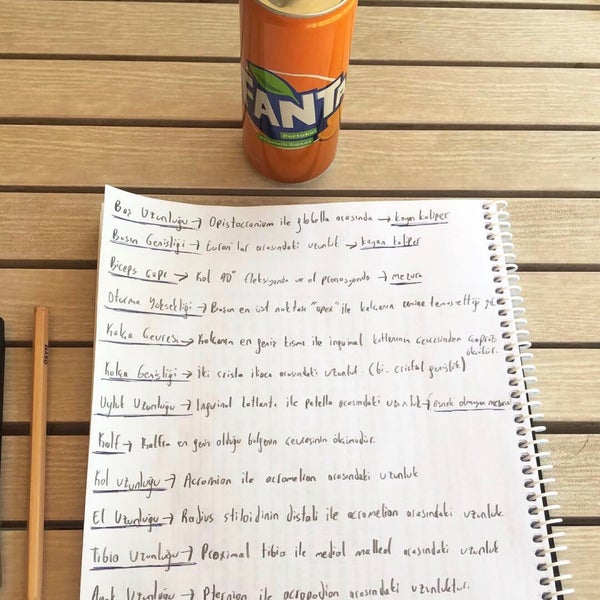 FANTA
Portakal
Aromalı Gazoz
Baş Uzunluğu → Opistocranium ile glabella arasında → kayan kaliper
Başın Genişliği → Euron'lar arasındaki uzunluk → kayan kaliper
Biceps Çapı → Kol 90° fleksiyonda ve el pronasyonda → mezura
Oturma Yüksekliği → Başın en üst noktası "apex" ile kalçanın zemine temas ettiği
Kalça Çevresi → Kalçanın en geniş kısmı ile inguinal katlarının çevresinden
ölçülür.
Kalça Genişliği → İki crista iliaca arasındaki uzunluk. (bi. cristal genişlik)
Uyluk Uzunluğu → Inguinal katlantı ile patella arasındaki uzunluk → (esnek olmayan mezura)
Kalf → Kalfın en geniş olduğu bölgenin çevresinin ölçümüdür.
Kol uzunluğu → Acromion ile acromelian arasındaki uzunluk
El Uzunluğu → Radius stiloidinin distali ile acromelian arasındaki uzunluk
Tibia Uzunluğu → Proximal tibia ile medial malleol arasındaki uzunluk
Ayak Uzunluğu → Pternion ile acropodion arasındaki uzunluktur.